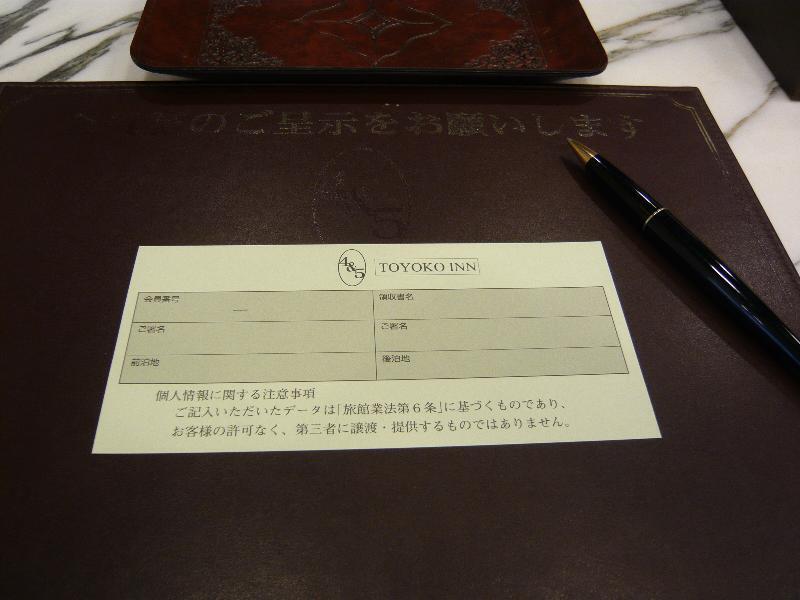 のご呈示をお願いします
4&5 TOYOKO INN
会員番号 — 領収書名
ご署名 ご署名
前泊地 後泊地
個人情報に関する注意事項
ご記入いただいたデータは「旅館業法第6条」に基づくものであり、
お客様の許可なく、第三者に譲渡・提供するものではありません。